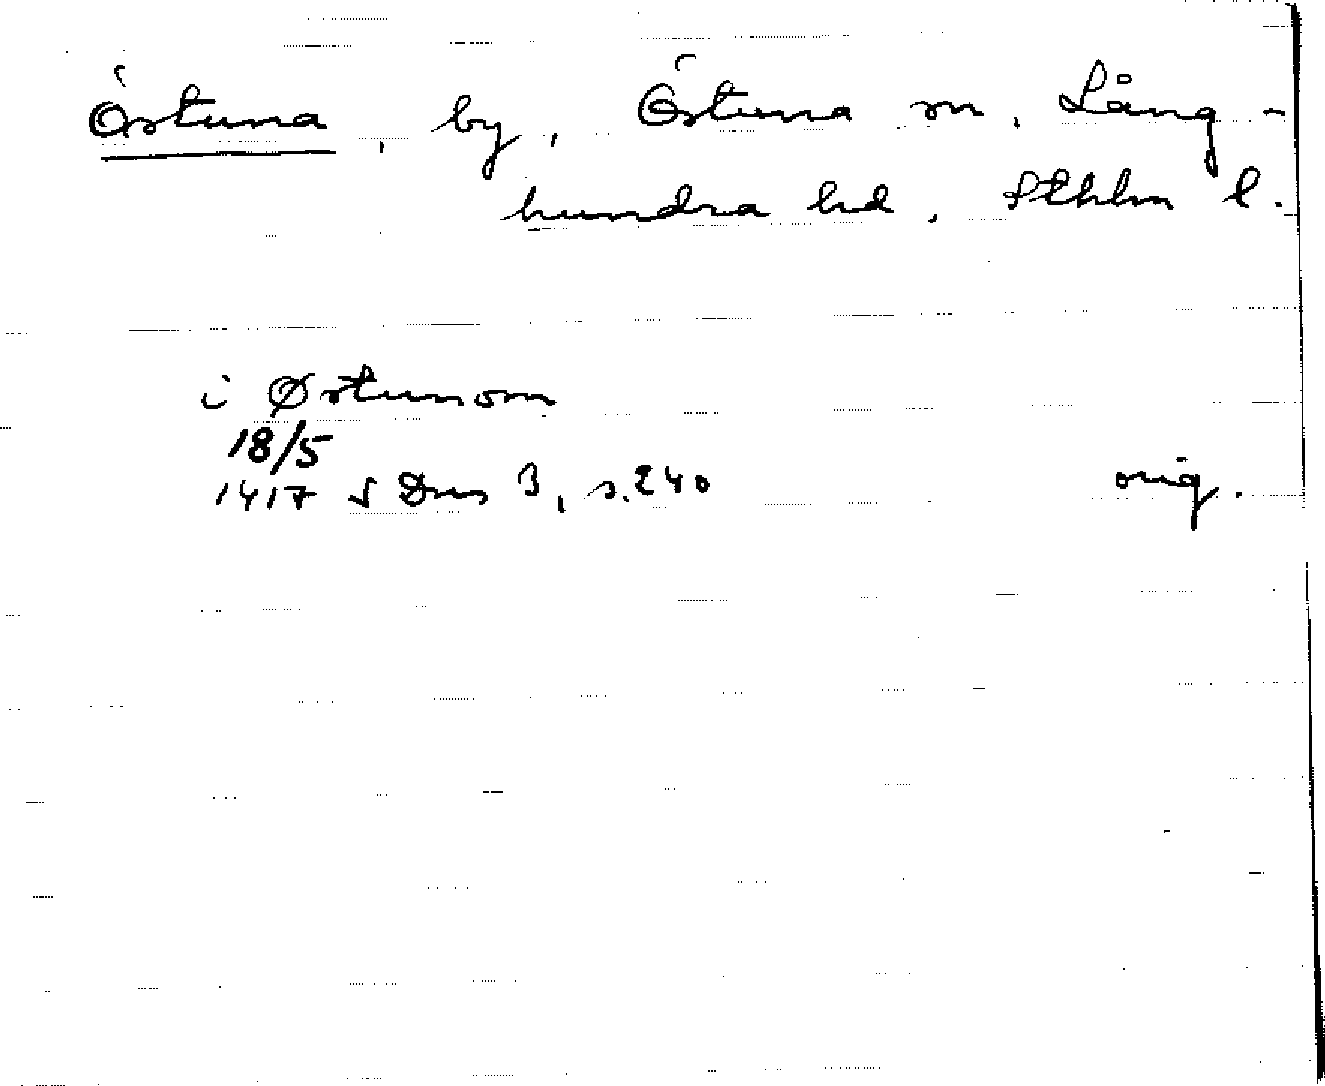 Östuna, by, Östuna sn, Lång-
hundra hd, Sthlm l.
i Østunom
18/5
1417 SDns 3, s. 240 orig.